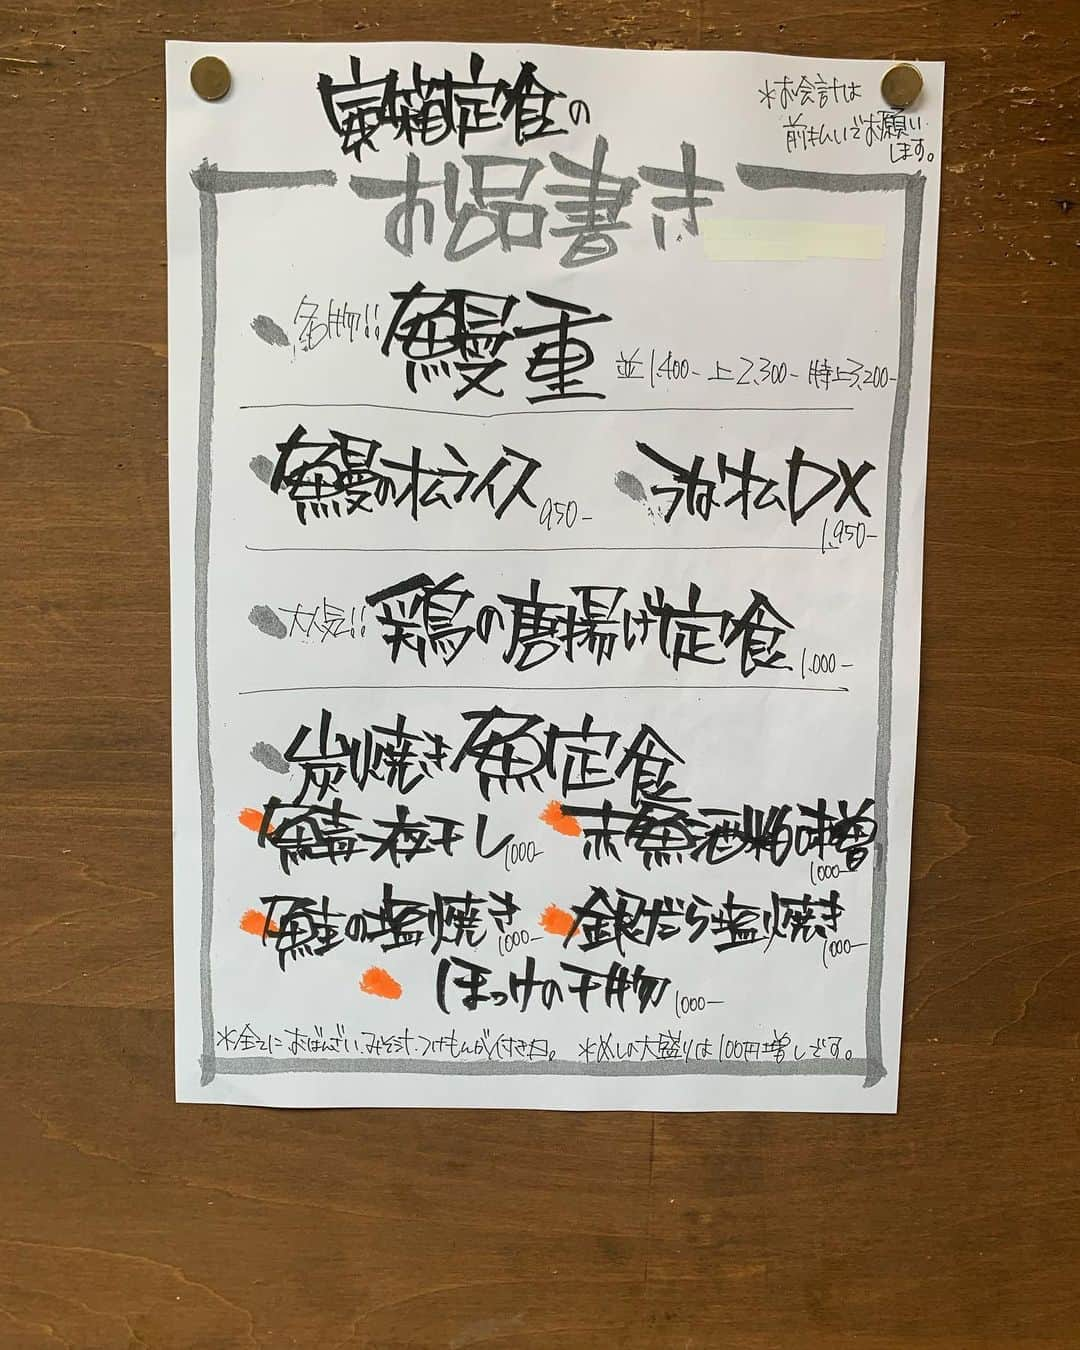 炭箱定食の
＊お会計は
前払いでお願い
します。
お品書き
名物!! 鰻重 並1,400- 上2,300- 特上3,200-
鰻のオムライス 950- うなオムDX 1,950-
大人気!! 鶏の唐揚げ定食 1,000-
炭火焼き魚定食
鯖一夜干し 1000- 赤魚酒粕味噌 1000-
鮭の塩焼き 1000- 銀だら塩焼き 1000-
ほっけの干物 1000-
＊全てにおばんざい、みそ汁、つけもんが付きます。 ＊めしの大盛りは100円増しです。